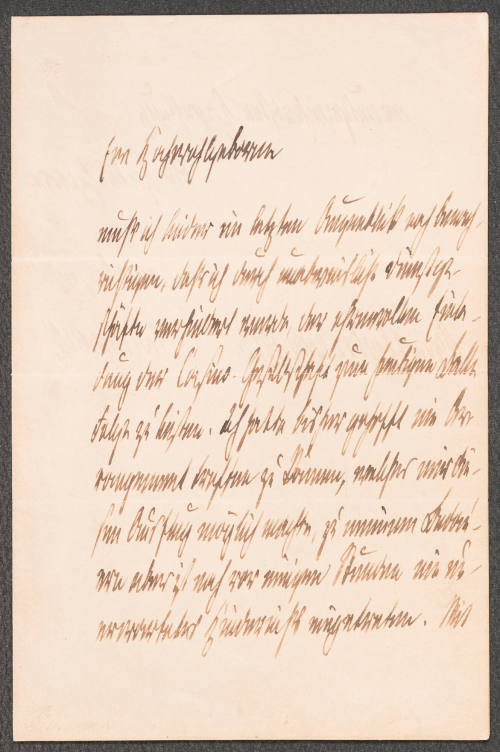 Euer Hochwohlgeboren
muß ich leider im letzten Augenblick noch benach-
richtigen, daß ich durch unabweisliche Dienstge-
schäfte verhindert wurde der ehrenvollen Einla-
dung der Casino-Gesellschaft zum heutigen Balle
Folge zu leisten. Ich hatte bisher gehofft ein Ar-
rangement treffen zu können, welches mir die-
sen Ausflug möglich machte, zu meinem Bedau-
ern aber ist noch vor einigen Stunden ein un-
erwartetes Hinderniß eingetreten. Mit